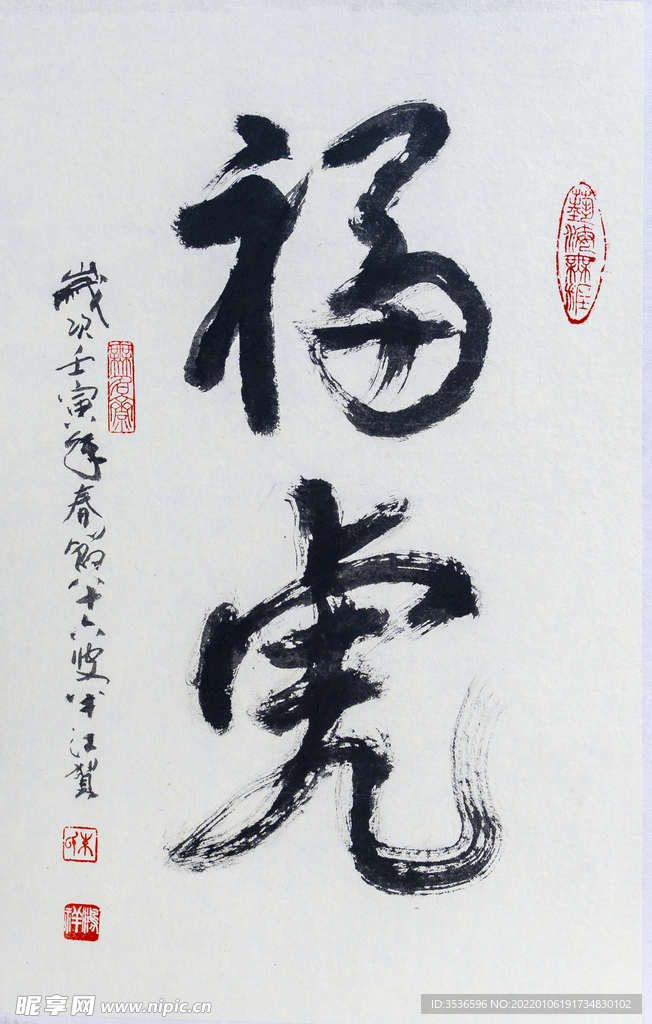 福虎
藝海無涯
歲次壬寅年春節八十六叟
賀
昵享网 www.nipic.cn
ID:3536596 NO:20220106191734830102